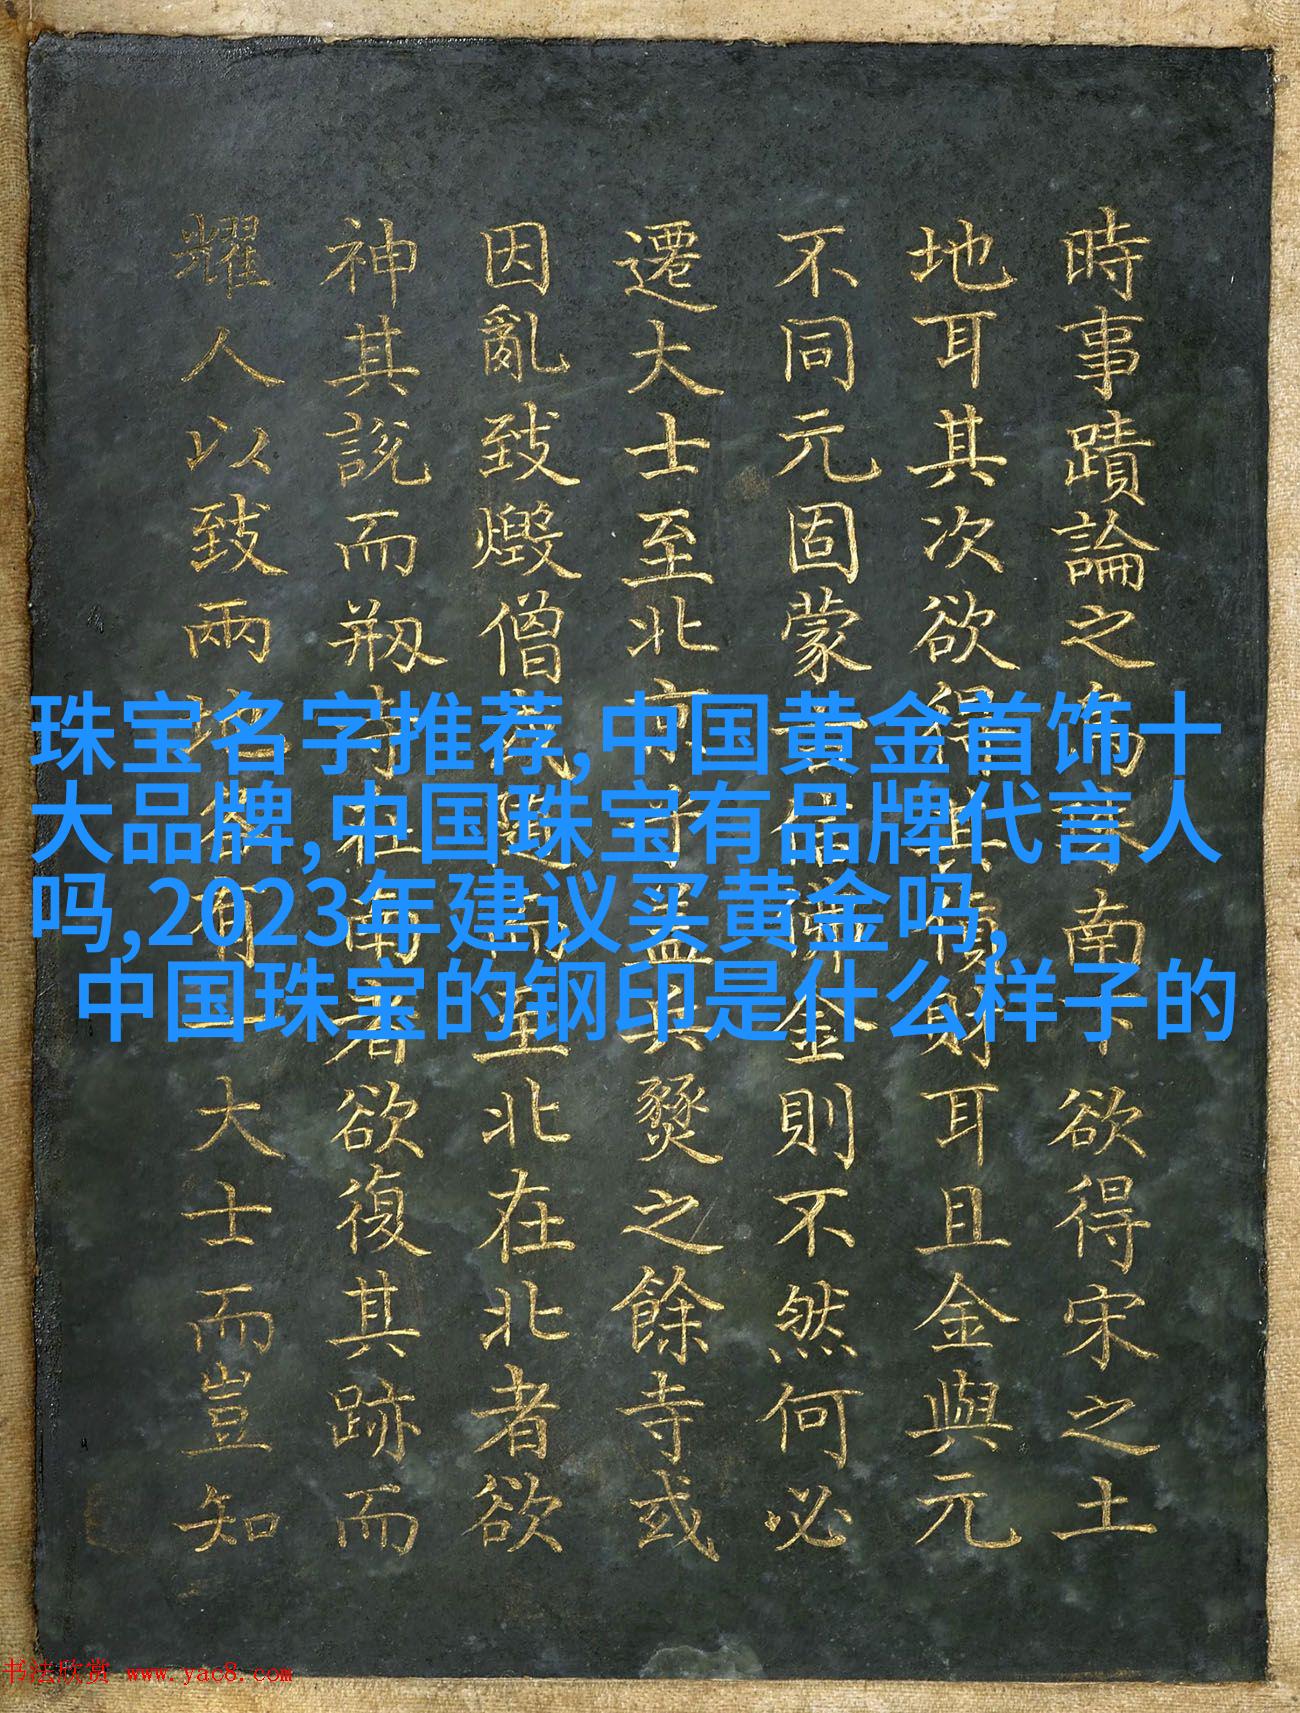 時事蹟論之為南欲得宋之土
地耳其次欲得與財耳且金與元
不同元固蒙古佛金則不然何必
遷大士至北京盖兵燹之餘寺或
因亂致燬僧或隨而至北在北者欲
神其說而剏寺在南者欲復其跡而
耀人以致兩地各有一大士而豈知
珠宝名字推荐,中国黄金首饰十
大品牌,中国珠宝有品牌代言人
吗,2023年建议买黄金吗,
中国珠宝的钢印是什么样子的
书法欣赏 www.yac8.com